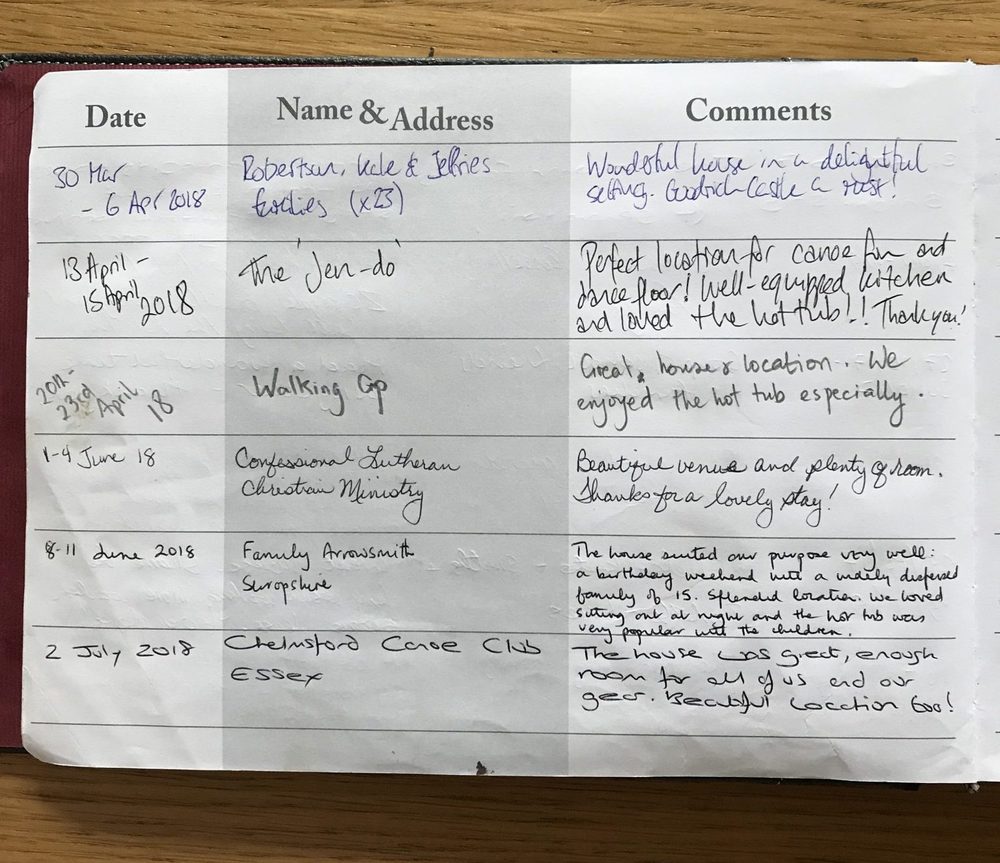 Date Name & Address Comments
30 Mar
- 6 Apr 2018
Robertson, Kale & Jeffries
families (x23)
Wonderful house in a delightful
setting. Goodrich Castle a must!
13 April -
15 April 2018
The 'Jen-do'
Perfect location for canoe fun and
dance floor! Well-equipped kitchen
and loved the hot tub!! Thank you!
20th-
23rd April
18
Walking Gp
Great house & location. We
enjoyed the hot tub especially.
1-4 June 18
Confessional Lutheran
Christian Ministry
Beautiful venue and plenty of room.
Thanks for a lovely stay!
8-11 June 2018
Family Arrowsmith
Shropshire
The house suited our purpose very well:
a birthday weekend with a widely dispersed
family of 15. Splendid location. We loved
sitting out at night and the hot tub was
very popular with the children.
2 July 2018
Chelmsford Canoe Club
Essex
The house was great, enough
room for all of us and our
gear. Beautiful Location too!